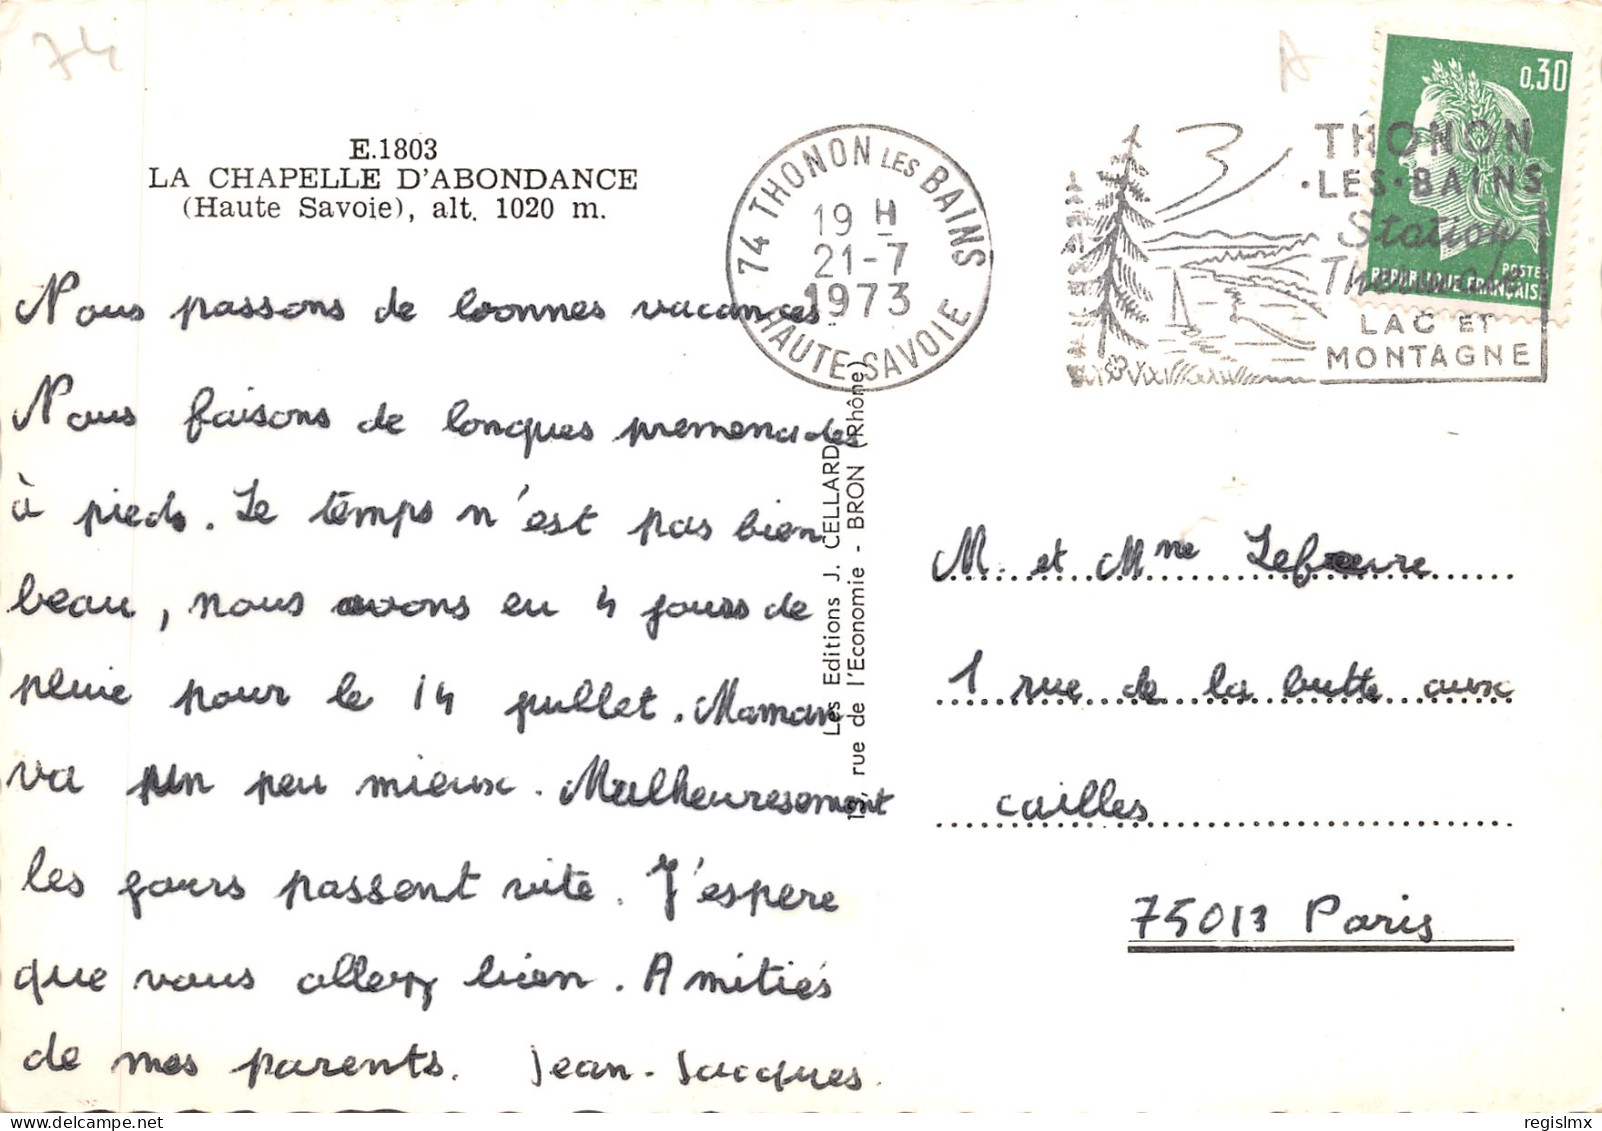 74
A
E.1803
LA CHAPELLE D'ABONDANCE
(Haute Savoie), alt. 1020 m.
Nous passons de bonnes vacances
Nous faisons de longues promenades
à pieds. Le temps n'est pas bien
beau, nous avons eu 4 jours de
pluie pour le 14 juillet. Maman
va un peu mieux. Malheuresement
les jours passent vite. J'espere
que vous allez bien. Amitiés
de mes parents. Jean-Jacques.
74 THONON LES BAINS
19 H
21-7
1973
HAUTE-SAVOIE
THONON
·LES·BAINS
Station
Thermale
LAC ET
MONTAGNE
0,30
POSTES
REPUBLIQUE FRANÇAISE
Les Editions J. CELLARD
13, rue de l'Economie - BRON (Rhône)
M. et Mme Lefevre
1 rue de la butte aux
cailles
75013 Paris
regislmx